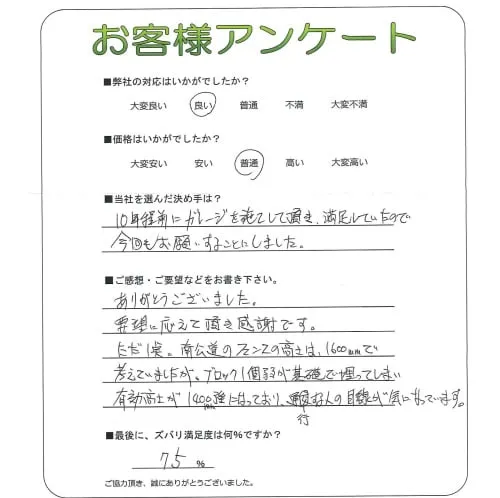 お客様アンケート
■弊社の対応はいかがでしたか?
大変良い 良い 普通 不満 大変不満
■価格はいかがでしたか?
大変安い 安い 普通 高い 大変高い
■当社を選んだ決め手は?
10年程前にガレージを施工して頂き、満足していたので
今回もお願いすることにしました。
■ご感想・ご要望などをお書き下さい。
ありがとうございました。
要望に応えて頂き感謝です。
ただ1実。南公道のフェンスの高さは、1600mmで
考えていましたが、ブロック1個弱が基礎で埋ってしまい
有効高さが1400強になっており、通行する人の目線が気になっています。
■最後に、ズバリ満足度は何%ですか?
75 %
ご協力頂き、誠にありがとうございました。